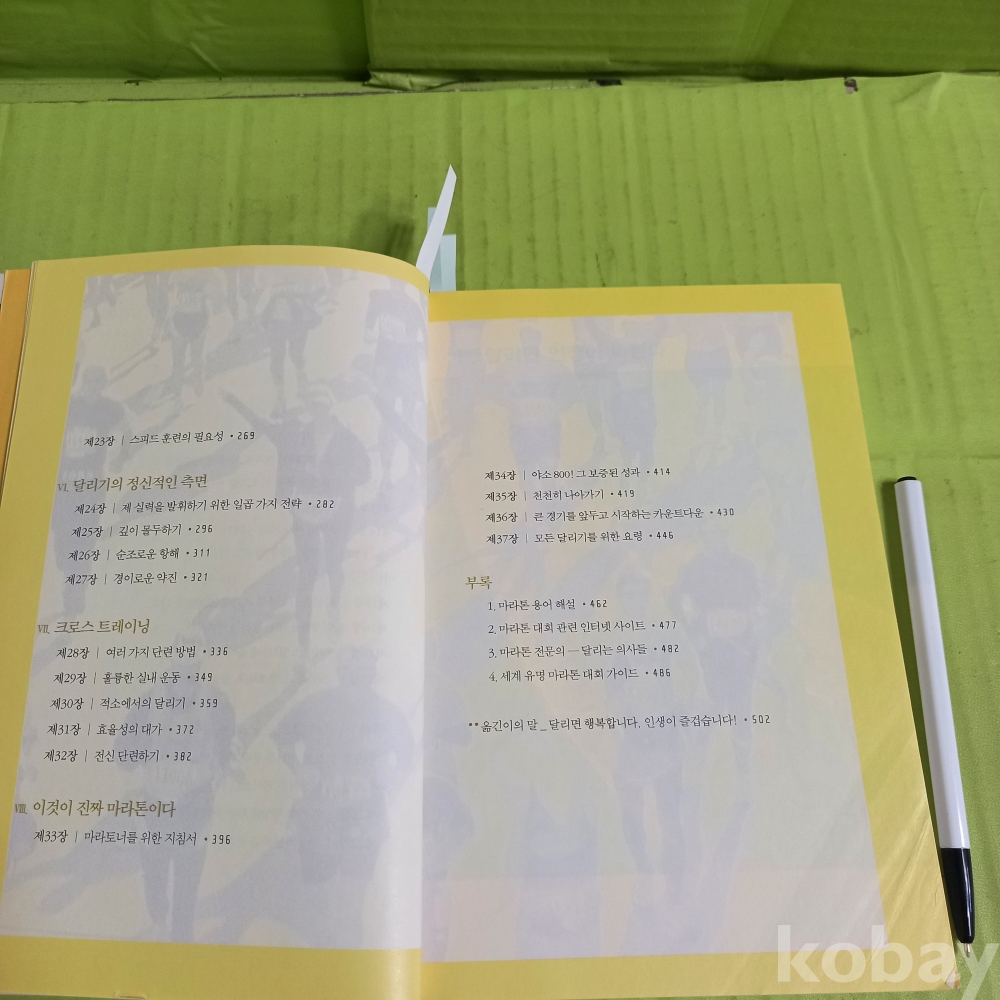 제23장 | 스피드 훈련의 필요성 • 269
VI. 달리기의 정신적인 측면
제24장 | 제 실력을 발휘하기 위한 일곱 가지 전략 • 282
제25장 | 깊이 몰두하기 • 296
제26장 | 순조로운 항해 • 311
제27장 | 경이로운 약진 • 321
VII. 크로스 트레이닝
제28장 | 여러 가지 단련 방법 • 336
제29장 | 훌륭한 실내 운동 • 349
제30장 | 적소에서의 달리기 • 359
제31장 | 효율성의 대가 • 372
제32장 | 전신 단련하기 • 382
VIII. 이것이 진짜 마라톤이다
제33장 | 마라토너를 위한 지침서 • 396
제34장 | 야소 800! 그 보증된 성과 • 414
제35장 | 천천히 나아가기 • 419
제36장 | 큰 경기를 앞두고 시작하는 카운트다운 • 430
제37장 | 모든 달리기를 위한 요령 • 446
부록
1. 마라톤 용어 해설 • 462
2. 마라톤 대회 관련 인터넷 사이트 • 477
3. 마라톤 전문의 — 달리는 의사들 • 482
4. 세계 유명 마라톤 대회 가이드 • 486
•• 옮긴이의 말 _ 달리면 행복합니다. 인생이 즐겁습니다! • 502
kobay